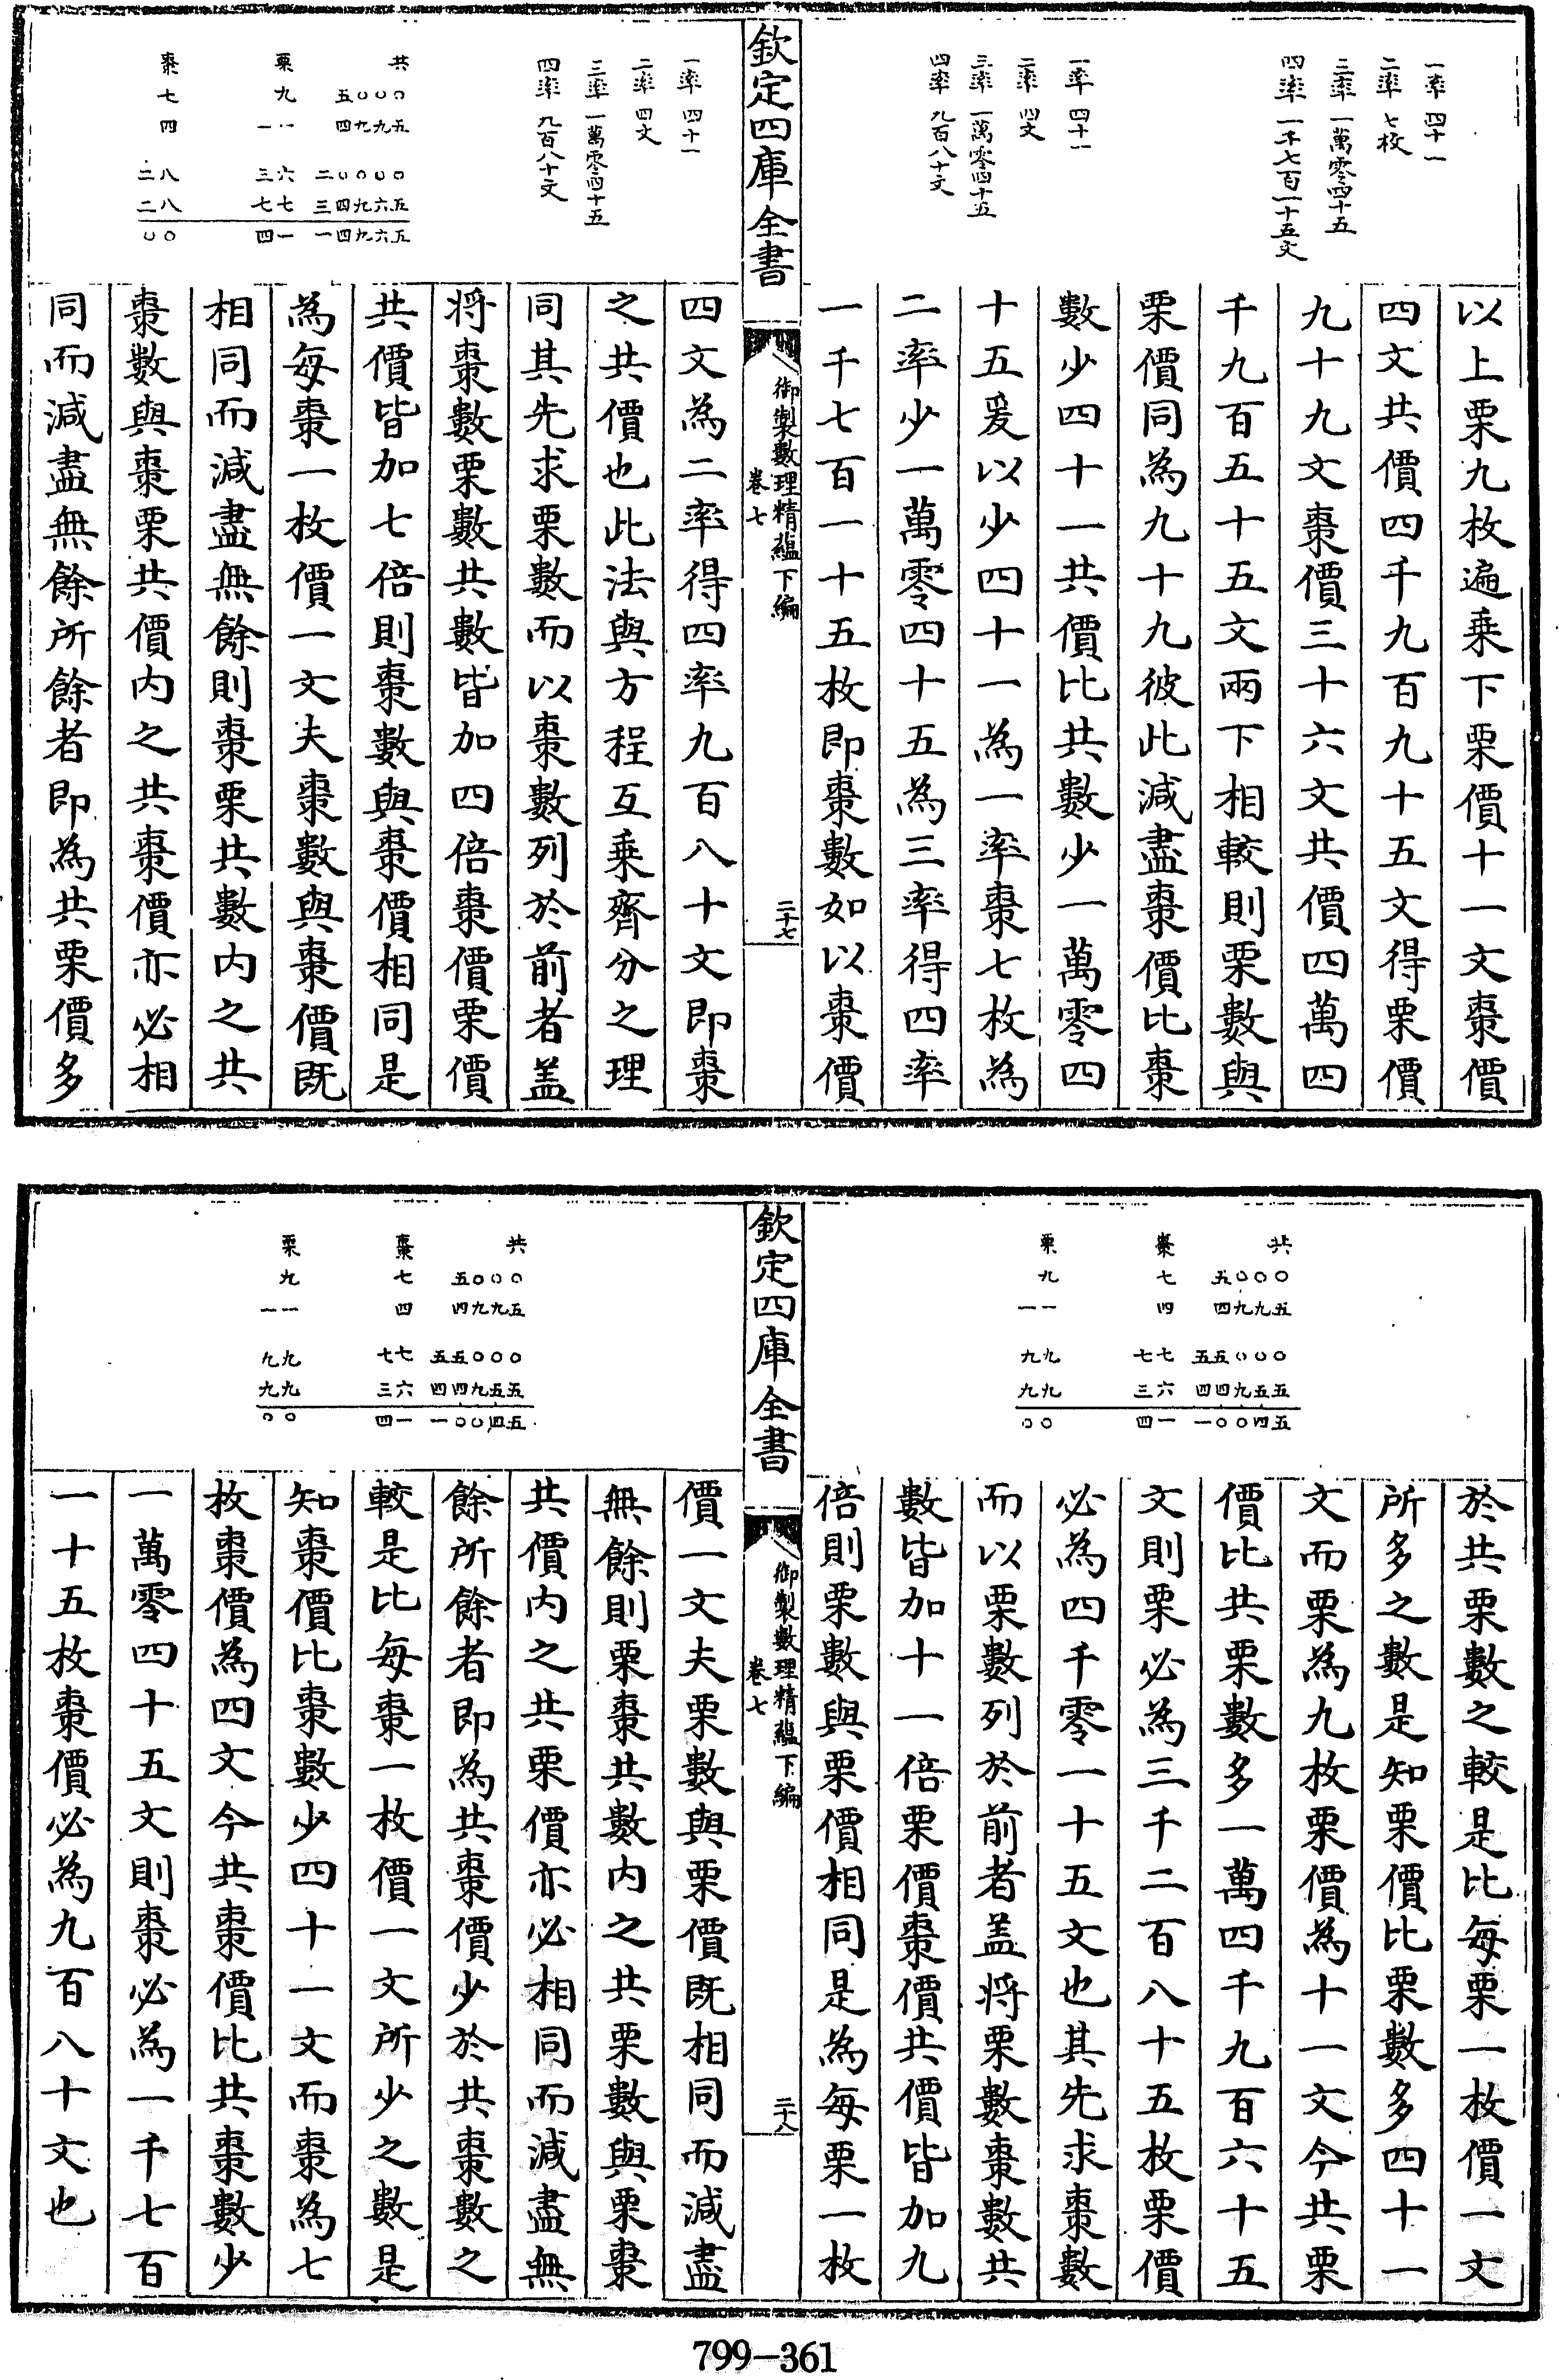 一率 四十一
二率 七枚
三率 一萬零四十五
四率 一千七百一十五文
一率 四十一
二率 四文
三率 一萬零四十五
四率 九百八十文
以上栗九枚遍乘下栗價十一文棗價
四文共價四千九百九十五文得栗價
九十九文棗價三十六文共價四萬四
千九百五十五文兩下相較則栗數與
栗價同為九十九彼此減盡棗價比棗
數少四十一共價比共數少一萬零四
十五爰以少四十一為一率棗七枚為
二率少一萬零四十五為三率得四率
一千七百一十五枚即棗數如以棗價
欽定四庫全書
御製數理精蘊下編
卷七
二十七
一率 四十一
二率 四文
三率 一萬零四十五
四率 九百八十文
棗 栗 共
七 九 五〇〇〇
四 一一 四九九五
二八 三六 二〇〇〇〇
二八 七七 三四九六五
〇〇 四一 一四九六五
四文為二率得四率九百八十文即棗
之共價也此法與方程互乘齊分之理
同其先求栗數而以棗數列於前者盖
将棗數栗數共數皆加四倍棗價栗價
共價皆加七倍則棗數與棗價相同是
為每棗一枚價一文夫棗數與棗價既
相同而減盡無餘則棗栗共數内之共
棗數與棗栗共價内之共棗價亦必相
同而減盡無餘所餘者即為共栗價多
栗 棗 共
九 七 五〇〇〇
一一 四 四九九五
九九 七七 五五〇〇〇
九九 三六 四四九五五
〇〇 四一 一〇〇四五
於共栗數之較是比每栗一枚價一文
所多之數是知栗價比栗數多四十一
文而栗為九枚栗價為十一文今共栗
價比共栗數多一萬四千九百六十五
文則栗必為三千二百八十五枚栗價
必為四千零一十五文也其先求棗數
而以栗數列於前者盖将栗數棗數共
數皆加十一倍栗價棗價共價皆加九
倍則栗數與栗價相同是為每栗一枚
欽定四庫全書
御製數理精蘊下編
卷七
二十八
栗 棗 共
九 七 五〇〇〇
一一 四 四九九五
九九 七七 五五〇〇〇
九九 三六 四四九五五
〇〇 四一 一〇〇四五
價一文夫栗數與栗價既相同而減盡
無餘則栗棗共數内之共栗數與栗棗
共價内之共栗價亦必相同而減盡無
餘所餘者即為共棗價少於共棗數之
較是比每棗一枚價一文所少之數是
知棗價比棗數少四十一文而棗為七
枚棗價為四文今共棗價比共棗數少
一萬零四十五文則棗必為一千七百
一十五枚棗價必為九百八十文也
799-361